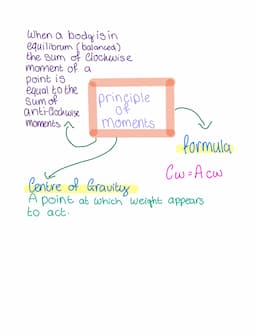 When a body is in
equilibrum (balanced)
the sum of Clockwise
moment of a
point is
equal to the
sum of
anti-Clockwise
moments
principle
of
moments
formula
Cw = Acw
Centre of Gravity
A point at which weight appears
to act.